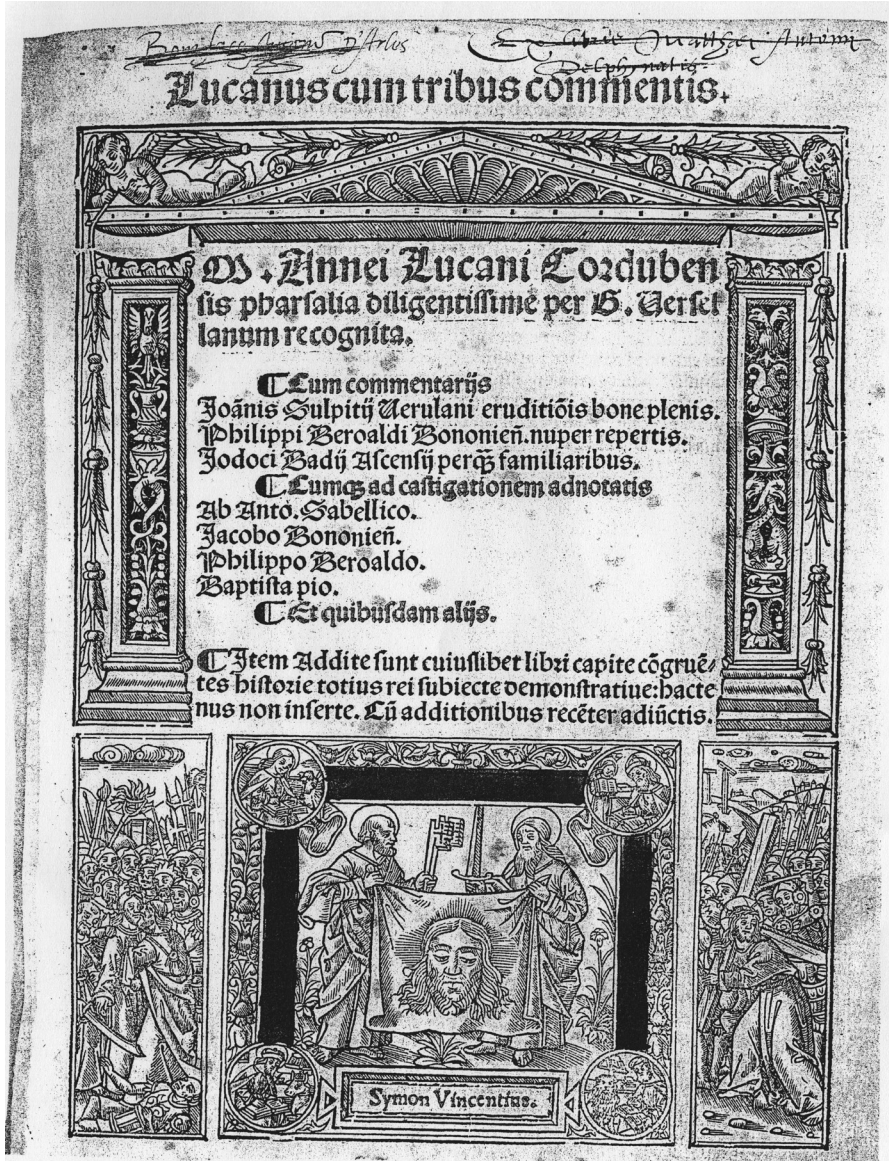 Lucanus cum tribus commentis.
M. Annei Lucani Corduben
sis pharsalia diligentissime per G. Versel
lanum recognita.
¶ Cum commentarijs
Joānis Sulpitij Verulani eruditiōis bone plenis.
Philippi Beroaldi Bononieñ. nuper repertis.
Jodoci Badij Ascensij perq̄ȝ familiaribus.
¶ Cumqȝ ad castigationem adnotatis
Ab Anto. Sabellico.
Jacobo Bononieñ.
Philippo Beroaldo.
Baptista pio.
¶ Et quibusdam alijs.
¶ Item Addite sunt cuiuslibet libri capite cōgruē⸗
tes historie totius rei subiecte demonstratiue: hacte
nus non inserte. Cū additionibus recēter adiūctis.
Symon Vincentius.